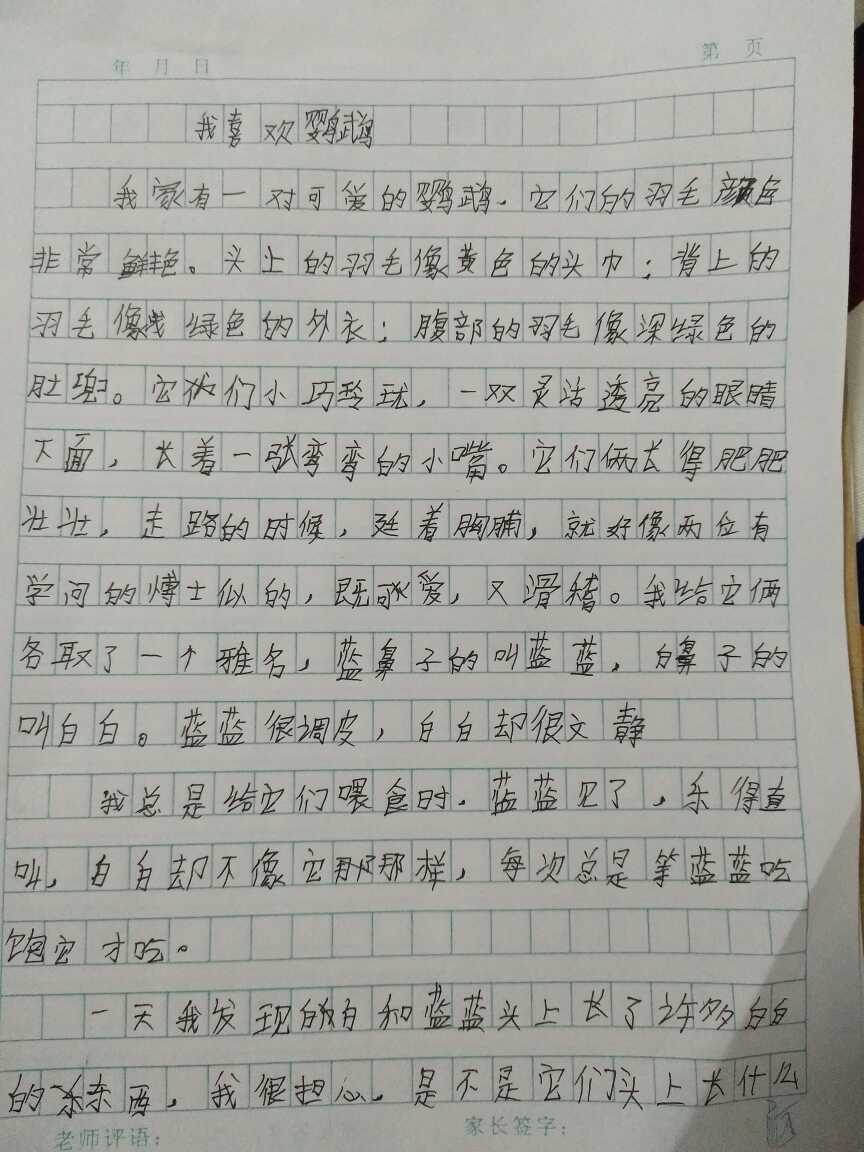 第 页
年 月 日
我喜欢鹦鹉
我家有一对可爱的鹦鹉.它们的羽毛颜色
非常鲜艳。头上的羽毛像黄色的头巾;背上的
羽毛像浅绿色的外衣;腹部的羽毛像深绿色的
肚兜。它们小巧玲珑,一双灵活透亮的眼睛
下面,长着一张弯弯的小嘴。它们俩长得肥肥
壮壮,走路的时候,挺着胸脯,就好像两位有
学问的博士似的,既可爱,又滑稽。我给它俩
各取了一个雅名,蓝鼻子的叫蓝蓝,白鼻子的
叫白白。蓝蓝很调皮,白白却很文静
我总是给它们喂食时.蓝蓝见了,乐得直
叫,白白却不像它那样,每次总是等蓝蓝吃
饱它才吃。
一天我发现白白和蓝蓝头上长了许多白白
的东西,我很担心.是不是它们头上长什么
老师评语: 家长签字: